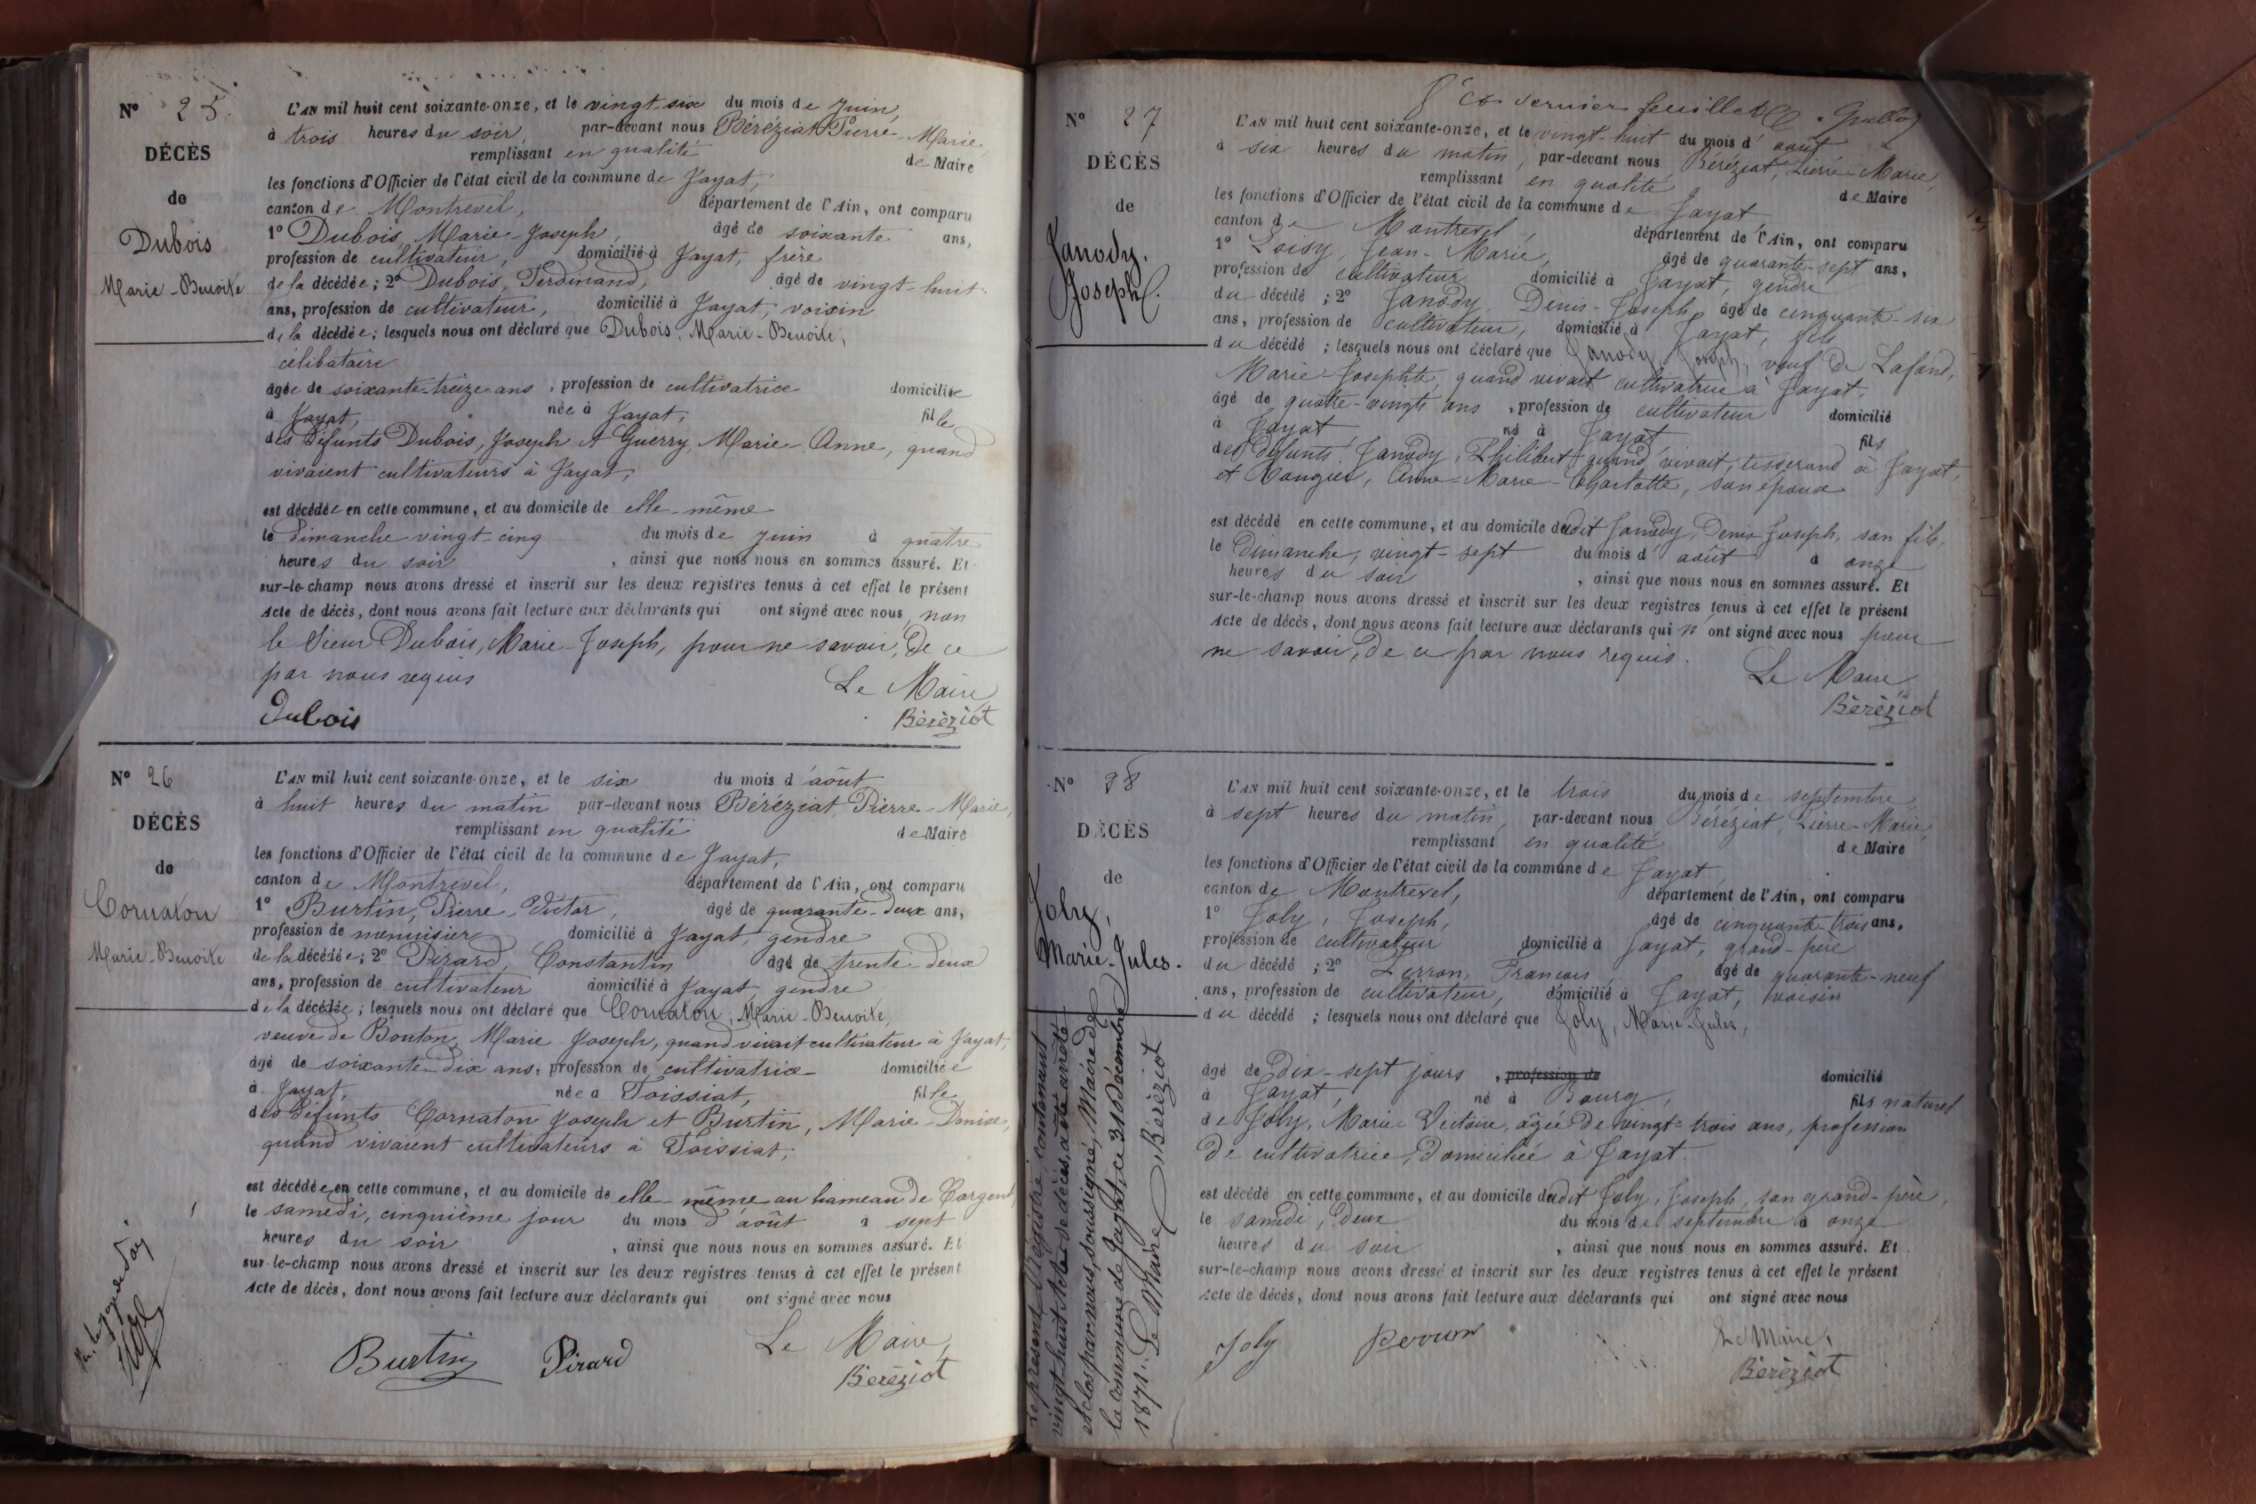 N° 25.
DÉCÈS
de
Dubois
Marie-Benoite
L'AN mil huit cent soixante-onze, et le vingt-six du mois de Juin,
à trois heures du soir, par-devant nous Béréziat Pierre-Marie,
remplissant en qualité de Maire
les fonctions d'Officier de l'état civil de la commune de Jayat,
canton de Montrevel, département de l'Ain, ont comparu
1° Dubois, Marie-Joseph, âgé de soixante ans,
profession de cultivateur, domicilié à Jayat, frère
de la décédée; 2° Dubois, Ferdinand, âgé de vingt-huit
ans, profession de cultivateur, domicilié à Jayat, voisin
de la décédée; lesquels nous ont déclaré que Dubois, Marie-Benoite,
célibataire
âgée de soixante-treize ans, profession de cultivatrice domiciliée
à Jayat, née à Jayat, fille
des défunts Dubois, Joseph et Guerry, Marie-Anne, quand
vivaient cultivateurs à Jayat,
est décédée en cette commune, et au domicile de elle-même
le Dimanche vingt-cinq du mois de juin à quatre
heures du soir, ainsi que nous nous en sommes assuré. Et
sur-le-champ nous avons dressé et inscrit sur les deux registres tenus à cet effet le présent
Acte de décès, dont nous avons fait lecture aux déclarants qui ont signé avec nous, non
le sieur Dubois, Marie-Joseph, pour ne savoir, de ce
par nous requis
Le Maire
Dubois Béréziat
N° 26
DÉCÈS
de
Cornaton
Marie-Benoite
L'AN mil huit cent soixante-onze, et le six du mois d'août
à huit heures du matin par-devant nous Béréziat, Pierre-Marie,
remplissant en qualité de Maire
les fonctions d'Officier de l'état civil de la commune de Jayat,
canton de Montrevel, département de l'Ain, ont comparu
1° Burtin, Pierre-Victor, âgé de quarante-deux ans,
profession de menuisier domicilié à Jayat, gendre
de la décédée; 2° Pirard, Constantin âgé de trente-deux
ans, profession de cultivateur domicilié à Jayat, gendre
de la décédée; lesquels nous ont déclaré que Cornaton, Marie-Benoite,
veuve de Bouton, Marie-Joseph, quand vivait cultivateur à Jayat,
âgé de soixante-dix ans, profession de cultivatrice domiciliée
à Jayat, née à Foissiat, fille
des défunts Cornaton Joseph et Burtin, Marie-Denise,
quand vivaient cultivateurs à Foissiat,
est décédée en cette commune, et au domicile de elle-même au hameau de
le samedi, cinquième jour du mois d'août à sept
heures du soir, ainsi que nous nous en sommes assuré. Et
sur-le-champ nous avons dressé et inscrit sur les deux registres tenus à cet effet le présent
Acte de décès, dont nous avons fait lecture aux déclarants qui ont signé avec nous
Le Maire,
Burtin Pirard Béréziat
dernier feuillet
N° 27
DÉCÈS
de
Janody.
Joseph.
L'AN mil huit cent soixante-onze, et le vingt-huit du mois d'août
à six heures du matin, par-devant nous Béréziat, Pierre-Marie,
remplissant en qualité de Maire
les fonctions d'Officier de l'état civil de la commune de Jayat,
canton de Montrevel, département de l'Ain, ont comparu
1° Loisy, Jean-Marie, âgé de quarante-sept ans,
profession de cultivateur domicilié à Jayat, gendre
du décédé; 2° Janody, Denis-Joseph, âgé de cinquante-six
ans, profession de cultivateur, domicilié à Jayat, fils
du décédé; lesquels nous ont déclaré que Janody, Joseph, veuf de Lafond,
Marie-Josephte, quand vivait cultivatrice à Jayat,
âgé de quatre-vingts ans, profession de cultivateur domicilié
à Jayat, né à Jayat fils
des défunts Janody, Philibert quand vivait, tisserand à Jayat,
et Rongier, Anne-Marie-Charlotte, son épouse
est décédé en cette commune, et au domicile dudit Janody, Denis-Joseph, son fils,
le Dimanche, vingt-sept du mois d'août à onze
heures du soir, ainsi que nous nous en sommes assuré. Et
sur-le-champ nous avons dressé et inscrit sur les deux registres tenus à cet effet le présent
Acte de décès, dont nous avons fait lecture aux déclarants qui n'ont signé avec nous pour
ne savoir, de ce par nous requis.
Le Maire
Béréziat
N° 28
DÉCÈS
de
Joly,
Marie-Jules.
L'AN mil huit cent soixante-onze, et le trois du mois de septembre
à sept heures du matin, par-devant nous Béréziat, Pierre-Marie,
remplissant en qualité de Maire
les fonctions d'Officier de l'état civil de la commune de Jayat,
canton de Montrevel, département de l'Ain, ont comparu
1° Joly, Joseph, âgé de cinquante-trois ans,
profession de cultivateur domicilié à Jayat, grand-père
du décédé; 2° Perron, François, âgé de quarante-neuf
ans, profession de cultivateur, domicilié à Jayat, voisin
du décédé; lesquels nous ont déclaré que Joly, Marie-Jules,
âgé de dix-sept jours, profession de domicilié
à Jayat, né à Bourg, fils naturel
de Joly, Marie-Victoire, âgée de vingt-trois ans, profession
de cultivatrice, domiciliée à Jayat.
est décédé en cette commune, et au domicile dudit Joly, Joseph, son grand-père,
le samedi, deux du mois de septembre à onze
heures du soir, ainsi que nous nous en sommes assuré. Et
sur-le-champ nous avons dressé et inscrit sur les deux registres tenus à cet effet le présent
Acte de décès, dont nous avons fait lecture aux déclarants qui ont signé avec nous
Joly Perron Le Maire,
Béréziat
Le présent Registre, contenant
vingt-huit Actes de décès, a été arrêté
et clos par nous, soussigné, Maire de
la commune de Jayat, ce 31 Décembre
1871. Le Maire, Béréziat